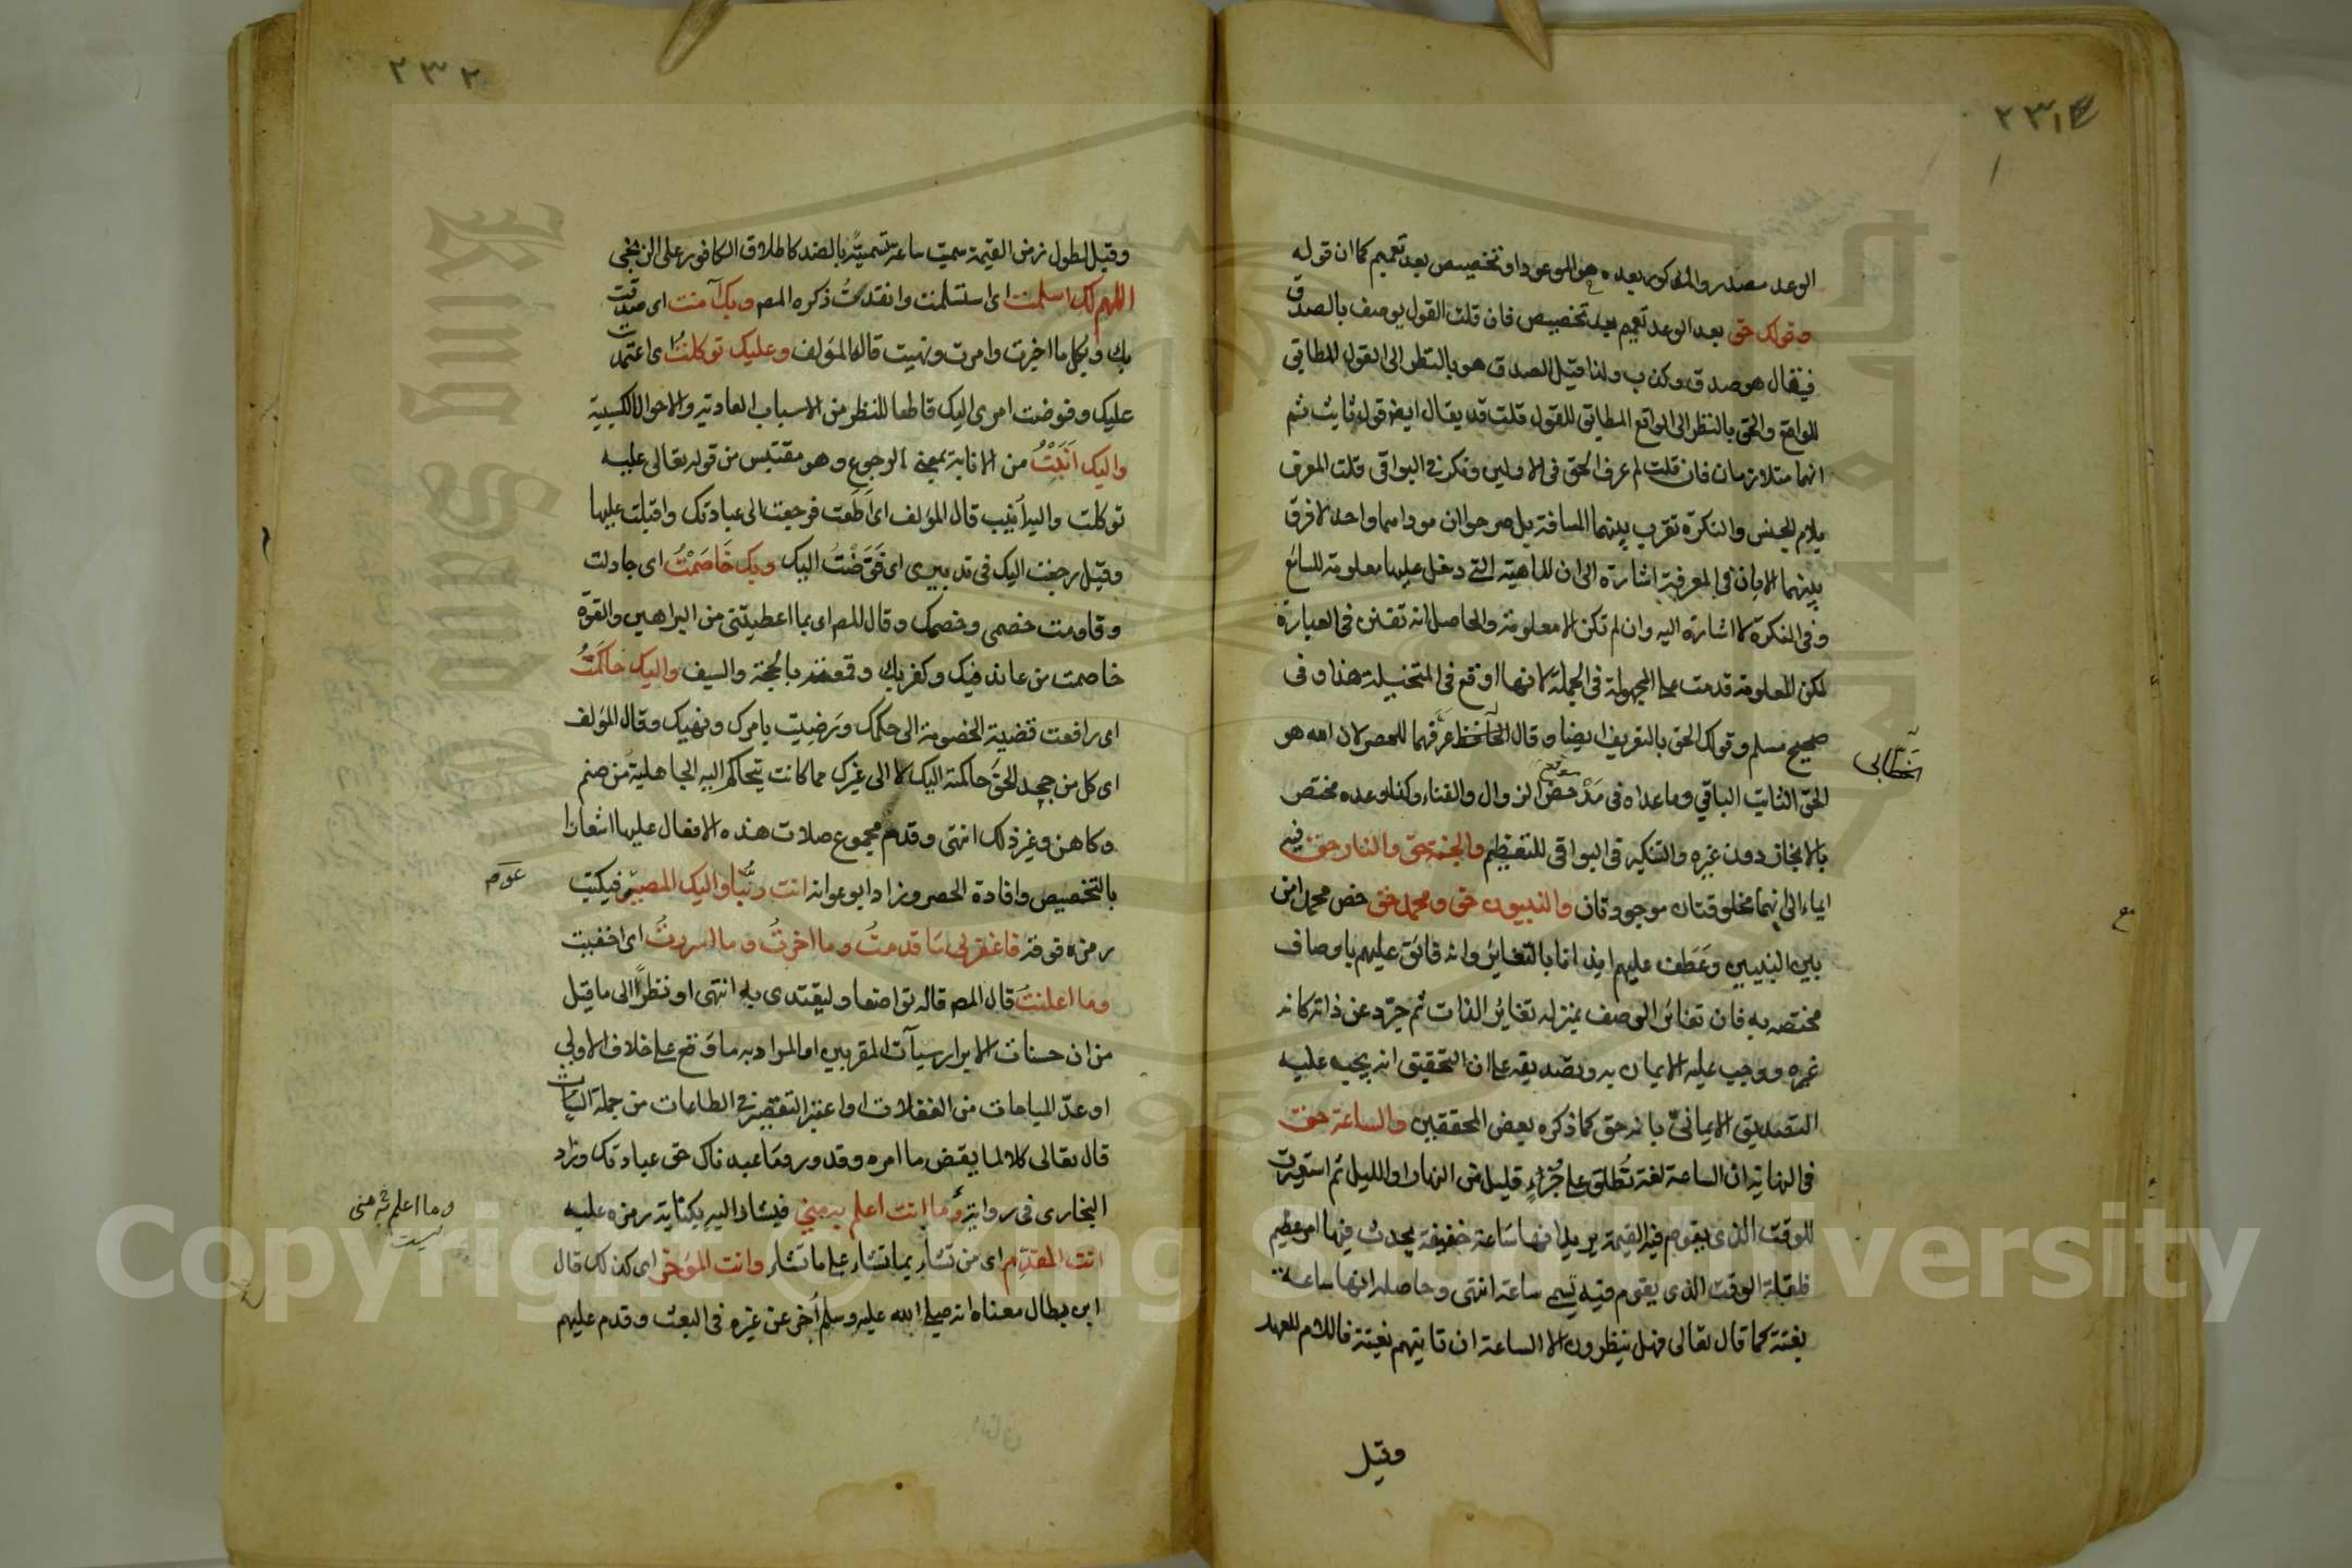 ٢٣١
الوعد مصدر والمذكور بعده هو الموعود او تخصيص بعد تعميم كما ان قوله
وقولك حق بعد الوعد تعميم بعد تخصيص فان قلت القول يوصف بالصدق
فيقال هو صدق وكذب ولذا قيل الصدق هو بالنظر الى القول المطابق
للواقع والحق بالنظر الى الواقع المطابق للقول قلت قد يقال ايضا قول ثابت ثم
انهما متلازمان فان قلت لم عرف الحق في الاولين ونكر في البواقي قلت المعرف
بلام الجنس والنكرة تقرب بينهما المسافة بل صرحوا ان موداهما واحد لا فرق
بينهما الا بان في المعرفة اشارة الى ان الماهية التي دخل عليها معلومة للسامع
وفي النكرة لا اشارة اليه وان لم تكن الا معلومة والحاصل انه تفنن في العبارة
لكن المعلومة قدمت على المجهولة في الجملة لانها اوقع في المتخيلة هذا وفي
صحيح مسلم وقولك الحق بالتعريف ايضا وقال عرفهما للحصر لان الله هو
الخطابي
الحق الثابت الباقي وما عداه في معرض الزوال والفناء وكذا وعده مختص
بالانجاز دون غيره والتنكير في البواقي للتعظيم والجنة حق والنار حق فيه
ايماء الى انهما مخلوقتان موجودتان والنبيون حق ومحمد حق خص محمد من
بين النبيين وعطف عليهم ايذانا بالتغاير وانه فائق عليهم باوصاف
مختصه به فان تغاير الوصف بمنزلة تغاير الذات ثم جرد عن ذاته كانه
غيره ووجب عليه الايمان به وتصديقه على ان التحقيق انه يجب عليه
التصديق الايماني بانه حق كما ذكره بعض المحققين والساعة حق
في النهاية ان الساعة لغة تطلق على جزء قليل من النهار او الليل ثم استعيرت
للوقت الذي يقوم فيه القيمة يريد انها ساعة خفيفة يحدث فيها امر عظيم
فلقلة الوقت الذي يقوم فيه تسمى ساعة انتهى وحاصله انها ساعة
بغتة كما قال تعالى فهل ينظرون الا الساعة ان تاتيهم بغتة فاللام للعهد
وقيل
٢٣٢
وقيل لطول زمن القيمة سميت ساعة تسمية بالضد كاطلاق الكافور على الزنجي
اللهم لك اسلمت اى استسلمت وانقدت ذكره المص وبك آمنت اى صدقت
بك وبكل ما اخبرت وامرت ونهيت قاله المؤلف وعليك توكلت اى اعتمدت
عليك وفوضت امرى اليك قاطعا للنظر من الاسباب العادية والاحوال الكسبية
واليك انبت من الانابة بمعنى الرجوع وهو مقتبس من قوله تعالى عليه
توكلت واليه انيب قال المؤلف اى اطعت فرجعت الى عبادتك واقبلت عليها
وقيل رجعت اليك في تدبيرى اى فوضت اليك وبك خاصمت اى جادلت
وقاومت خصمى وخصمك وقال المص اى بما اعطيتني من البراهين والقوة
خاصمت من عاند فيك وكفر بك وقمعته بالحجة والسيف واليك حاكمت
اى رافعت قضية الخصومة الى حكمك ورضيت بامرك ونهيك وقال المؤلف
اى كل من جحد الحق حاكمته اليك لا الى غيرك مما كانت تتحاكم اليه الجاهلية من صنم
وكاهن وغير ذلك انتهى وقدم مجموع صلات هذه الافعال عليها اشعارا
بالتخصيص وافادة الحصر وزاد ابو عوانه انت ربنا واليك المصير فيكتب
عو م
رمزه فوقه فاغفر لي ما قدمت وما اخرت وما اسررت اى اخفيت
وما اعلنت قال المص قاله تواضعا وليقتدى به انتهى او نظرا الى ما قيل
من ان حسنات الابرار سيآت المقربين او المراد به ما وقع على خلاف الاولى
او عد المباحات من الغفلات او اعتبر التقصير في الطاعات من جملة السيات
قال تعالى كلا لما يقض ما امره وقد ورد ما عبدناك حق عبادتك وزاد
البخارى في رواية وما انت اعلم به مني فيشار اليه بكتابة رمزه عليه
وما اعلم به منى
انت المقدم اى من تشاء بما تشاء على ما تشاء وانت المؤخر اى كذلك قال
ابن بطال معناه انه صلى الله عليه وسلم أخر عن غيره في البعث وقدم عليهم
Copyright © King Saud University